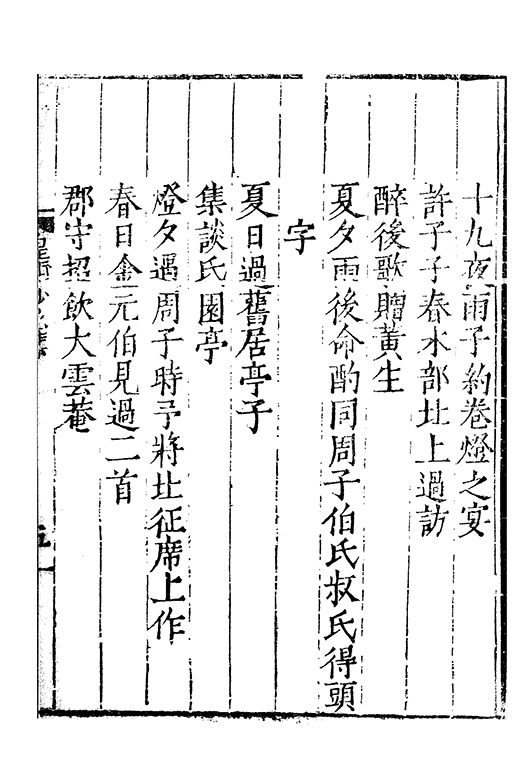 十九夜雨子約卷燈之宴
許子子春水部北上過訪
醉後歌贈黃生
夏夕雨後命酌同周子伯氏叔氏得頭
字
夏日過舊居亭子
集談氏園亭
燈夕遇周子時予將北征席上作
春日金元伯見過二首
郡守招飲大雲菴